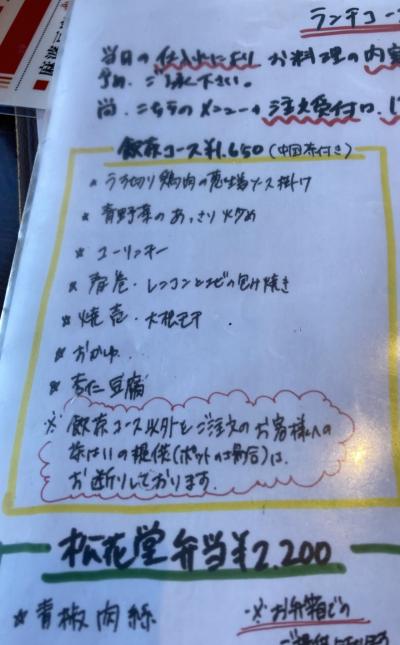 ランチコース
当日の仕入れにより お料理の内容
予め、ご了承下さい。
尚、こちらのメニューの注文受付は、
飲茶コース¥1,650(中国茶付き)
* うす切り鶏肉の葱生姜ソース掛け
* 青野菜のあっさり炒め
* ユーリンチー
* 春巻・レンコンとエビの包み焼き
* 焼売・大根モチ
* おかゆ
* 杏仁豆腐
※ 飲茶コース以外をご注文のお客様への
茶はいの提供(ポットの場合)は、
お断りしております。
松花堂弁当¥2,200
* 青椒肉絲
※お弁箱での